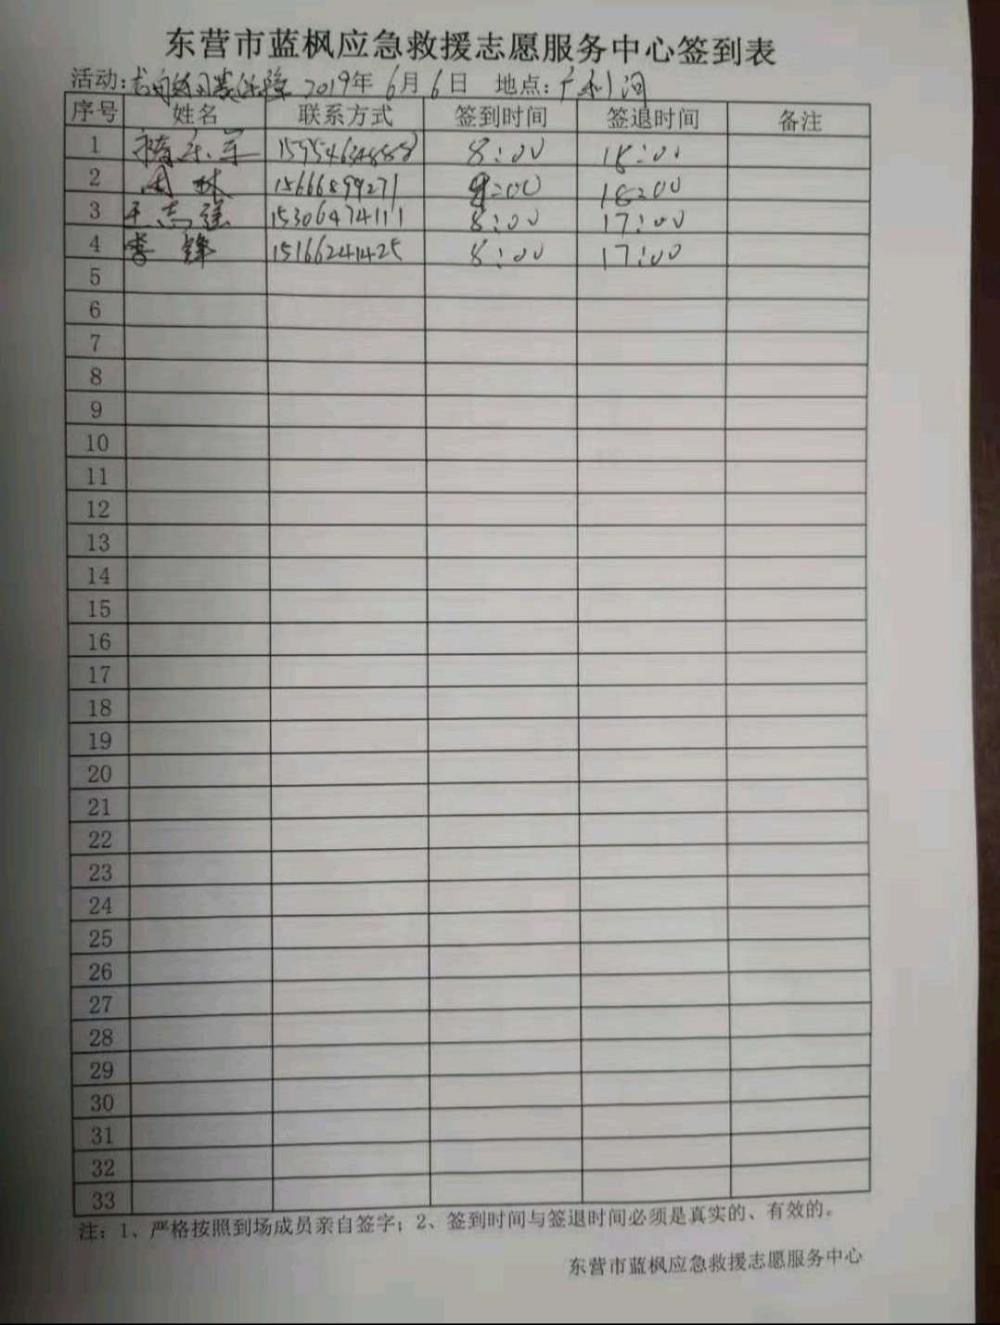 东营市蓝枫应急救援志愿服务中心签到表
活动: 2019年 6月 6日 地点: 广利河
序号 姓名 联系方式 签到时间 签退时间 备注
1 8:00 18:00
2 周林 15666899271 18:00
3 王志强 15306474111 8:00 17:00
4 李锋 15166241425 8:00 17:00
5
6
7
8
9
10
11
12
13
14
15
16
17
18
19
20
21
22
23
24
25
26
27
28
29
30
31
32
33
注：1、严格按照到场成员亲自签字；2、签到时间与签退时间必须是真实的、有效的。
东营市蓝枫应急救援志愿服务中心